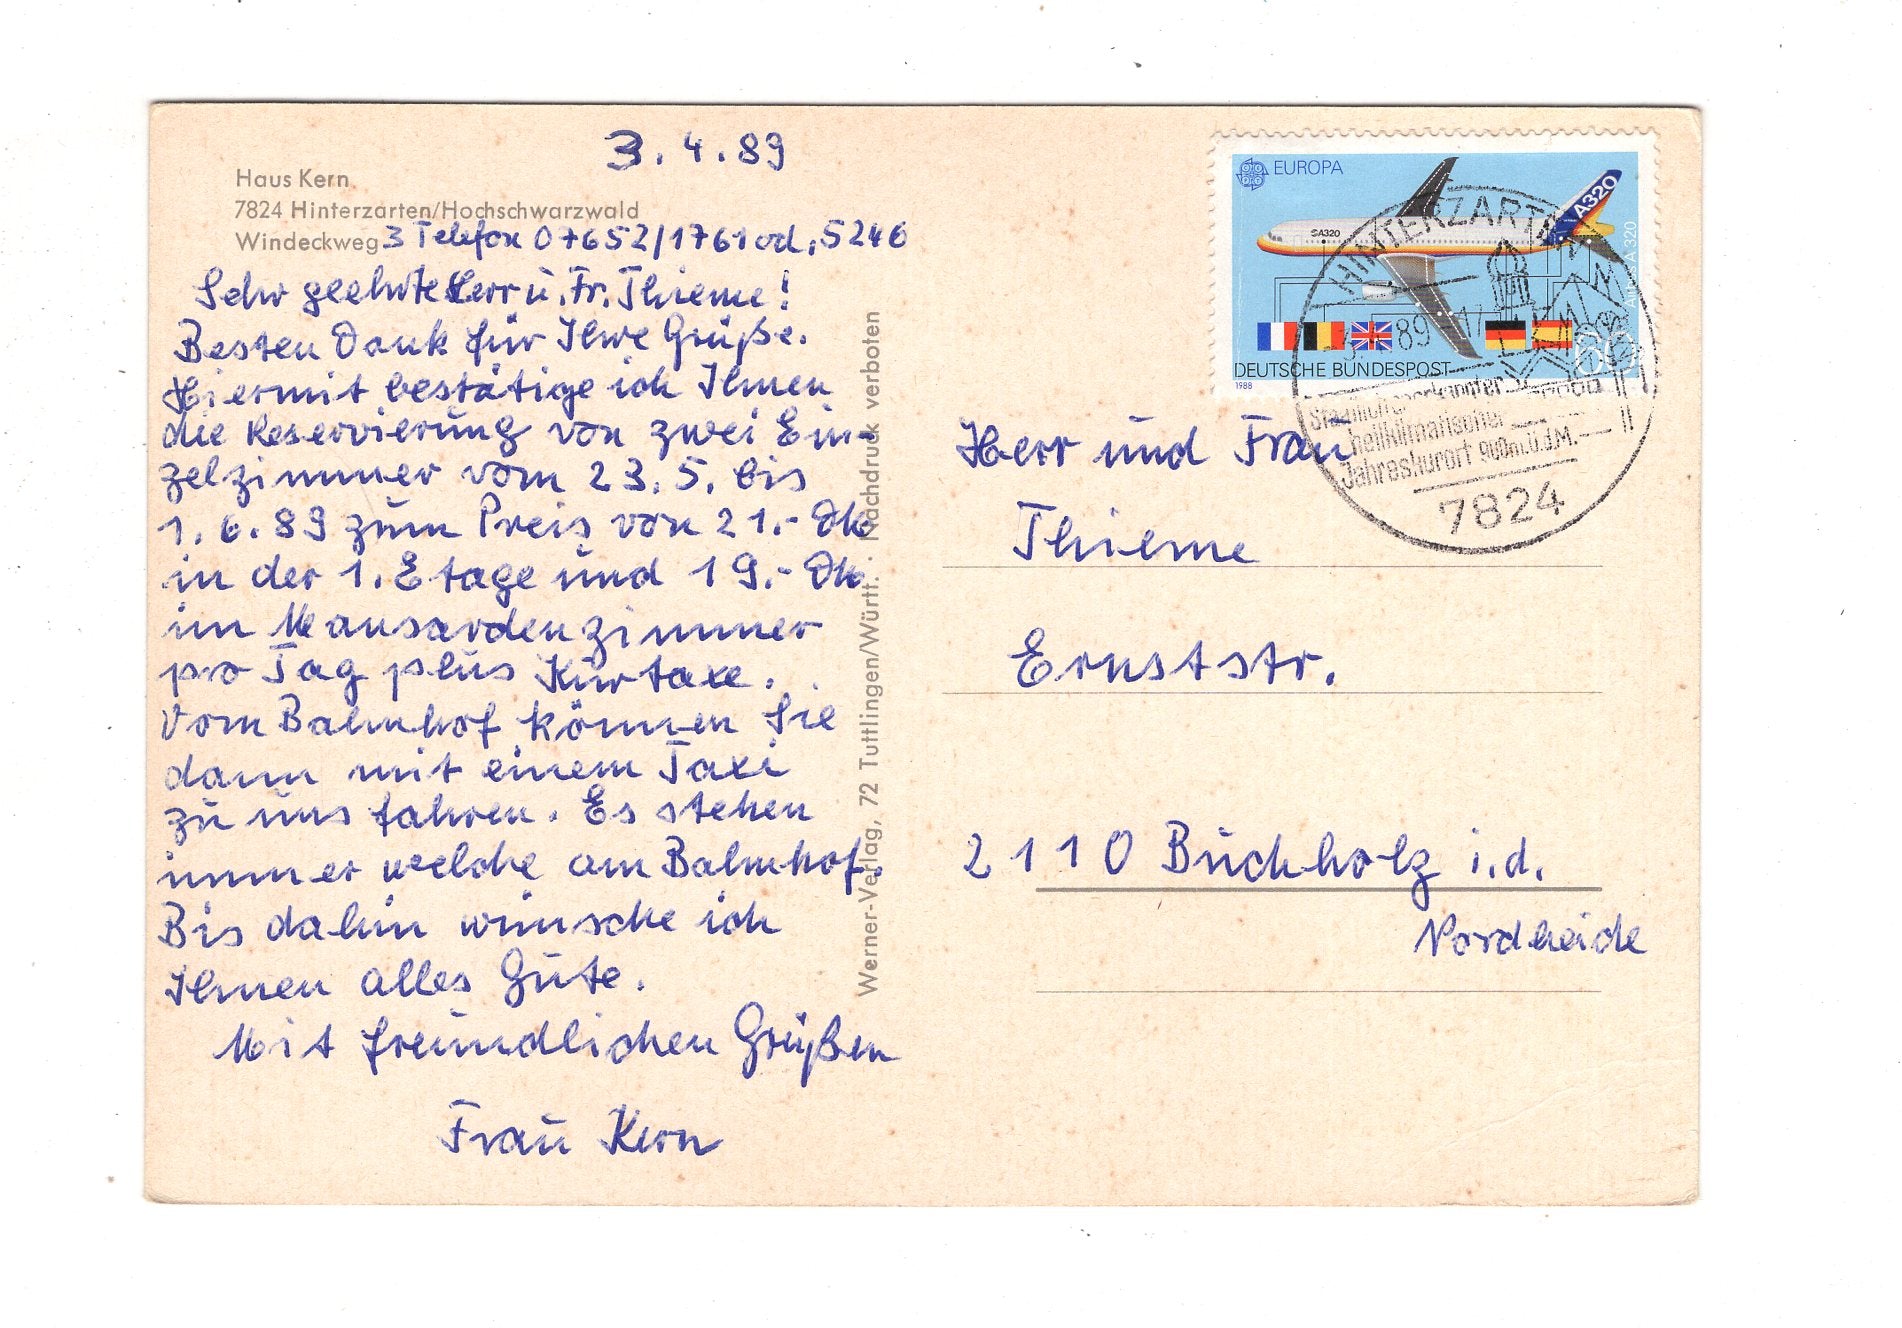 3.4.89
Haus Kern
7824 Hinterzarten/Hochschwarzwald
Windeckweg 3 Telefon 07652/1761 od. 5246
Sehr geehrte Herr u. Fr. Thieme!
Besten Dank für Ihre Grüße.
Hiermit bestätige ich Ihnen
die Reservierung von zwei Ein-
zelzimmer vom 23.5. bis
1.6.89 zum Preis von 21.- DM
in der 1. Etage und 19.- DM
im Mansardenzimmer
pro Tag plus Kurtaxe.
Vom Bahnhof können Sie
dann mit einem Taxi
zu uns fahren. Es stehen
immer welche am Bahnhof.
Bis dahin wünsche ich
Ihnen alles Gute.
Mit freundlichen Grüßen
Frau Kern
Werner-Verlag, 72 Tuttlingen/Württ. · Nachdruck verboten
EUROPA
A320
A320
Airbus A 320
DEUTSCHE BUNDESPOST
1988
60
HINTERZARTEN
89-17
Staatlich anerkannter
heilklimatischer
Jahreskurort 900m.ü.d.M.
7824
Herr und Frau
Thieme
Ernststr.
2110 Buchholz i.d.
Nordheide